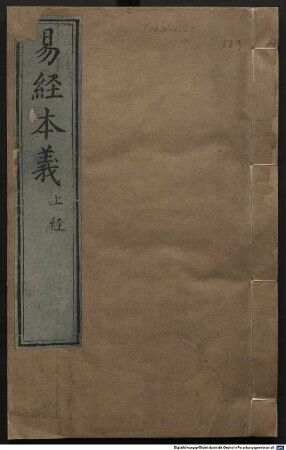 易経本義
上経
183
Digitalisierung gefördert durch die Deutsche Forschungsgemeinschaft